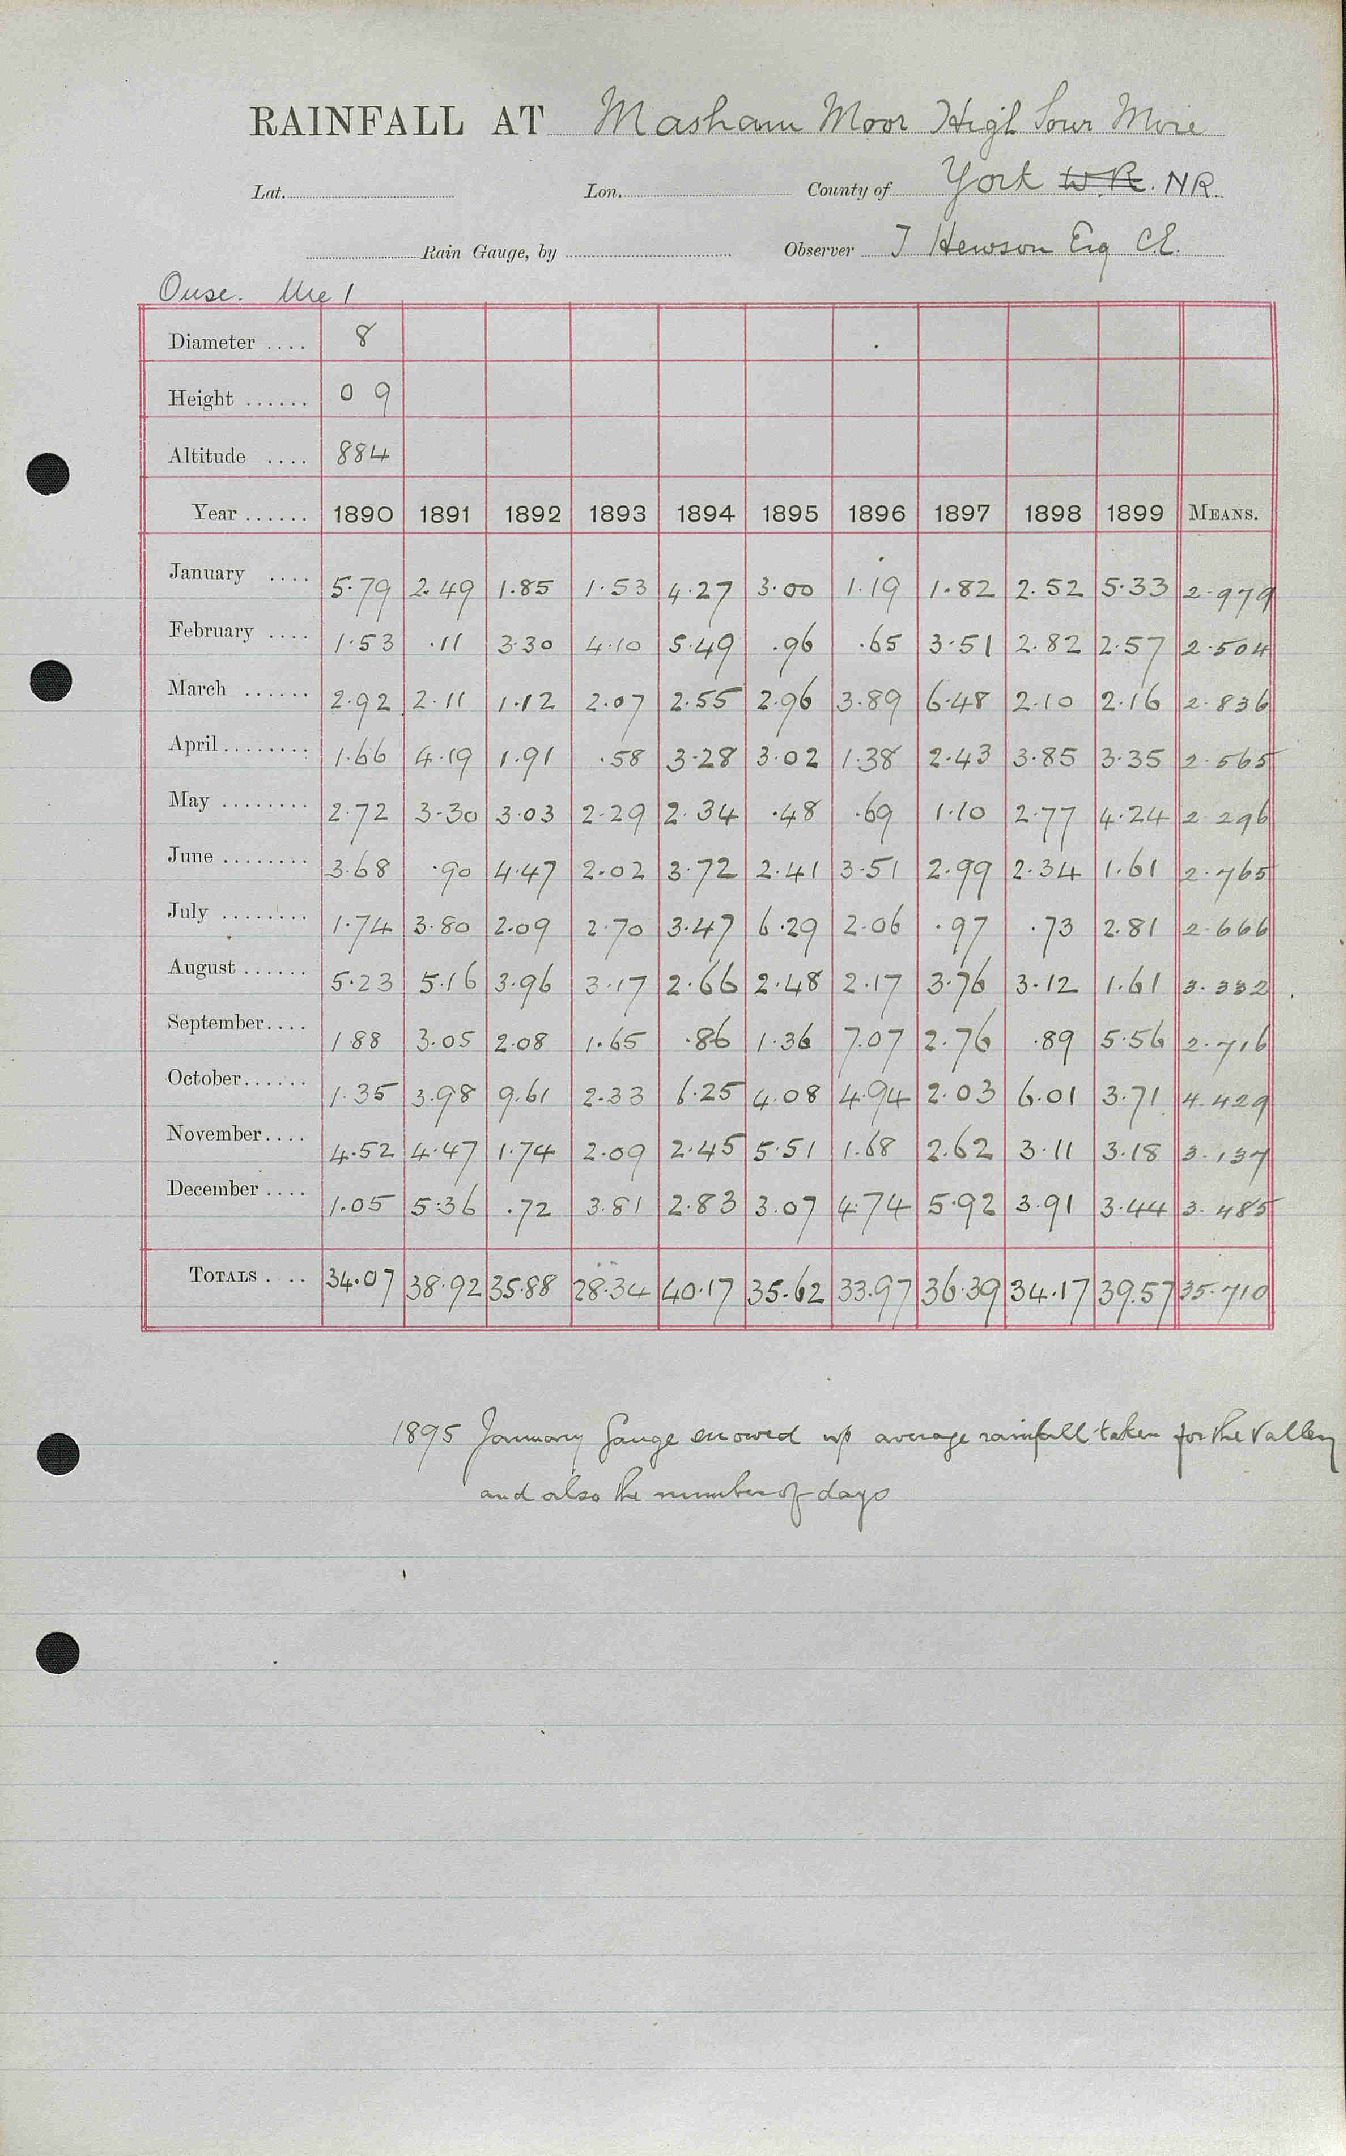 RAINFALL AT Masham Moor High Sour Mire
Lat. Lon. County of York W.R. NR.
Rain Gauge, by Observer T Hewson Esq CE.
Ouse. Ure 1
Diameter .... 8
Height ...... 0 9
Altitude .... 884
Year ...... 1890 1891 1892 1893 1894 1895 1896 1897 1898 1899 MEANS.
January .... 5.79 2.49 1.85 1.53 4.27 3.00 1.19 1.82 2.52 5.33 2.979
February .... 1.53 .11 3.30 4.10 5.49 .96 .65 3.51 2.82 2.57 2.504
March ...... 2.92 2.11 1.12 2.07 2.55 2.96 3.89 6.48 2.10 2.16 2.836
April ........ 1.66 4.19 1.91 .58 3.28 3.02 1.38 2.43 3.85 3.35 2.565
May ........ 2.72 3.30 3.03 2.29 2.34 .48 .69 1.10 2.77 4.24 2.296
June ........ 3.68 .90 4.47 2.02 3.72 2.41 3.51 2.99 2.34 1.61 2.765
July ........ 1.74 3.80 2.09 2.70 3.47 6.29 2.06 .97 .73 2.81 2.666
August ...... 5.23 5.16 3.96 3.17 2.66 2.48 2.17 3.76 3.12 1.61 3.332
September.... 1.88 3.05 2.08 1.65 .86 1.36 7.07 2.76 .89 5.56 2.716
October...... 1.35 3.98 9.61 2.33 6.25 4.08 4.94 2.03 6.01 3.71 4.429
November.... 4.52 4.47 1.74 2.09 2.45 5.51 1.68 2.62 3.11 3.18 3.137
December .... 1.05 5.36 .72 3.81 2.83 3.07 4.74 5.92 3.91 3.44 3.485
TOTALS .... 34.07 38.92 35.88 28.34 40.17 35.62 33.97 36.39 34.17 39.57 35.710
1895 January Gauge snowed up average rainfall taken for the Valley
and also the number of days